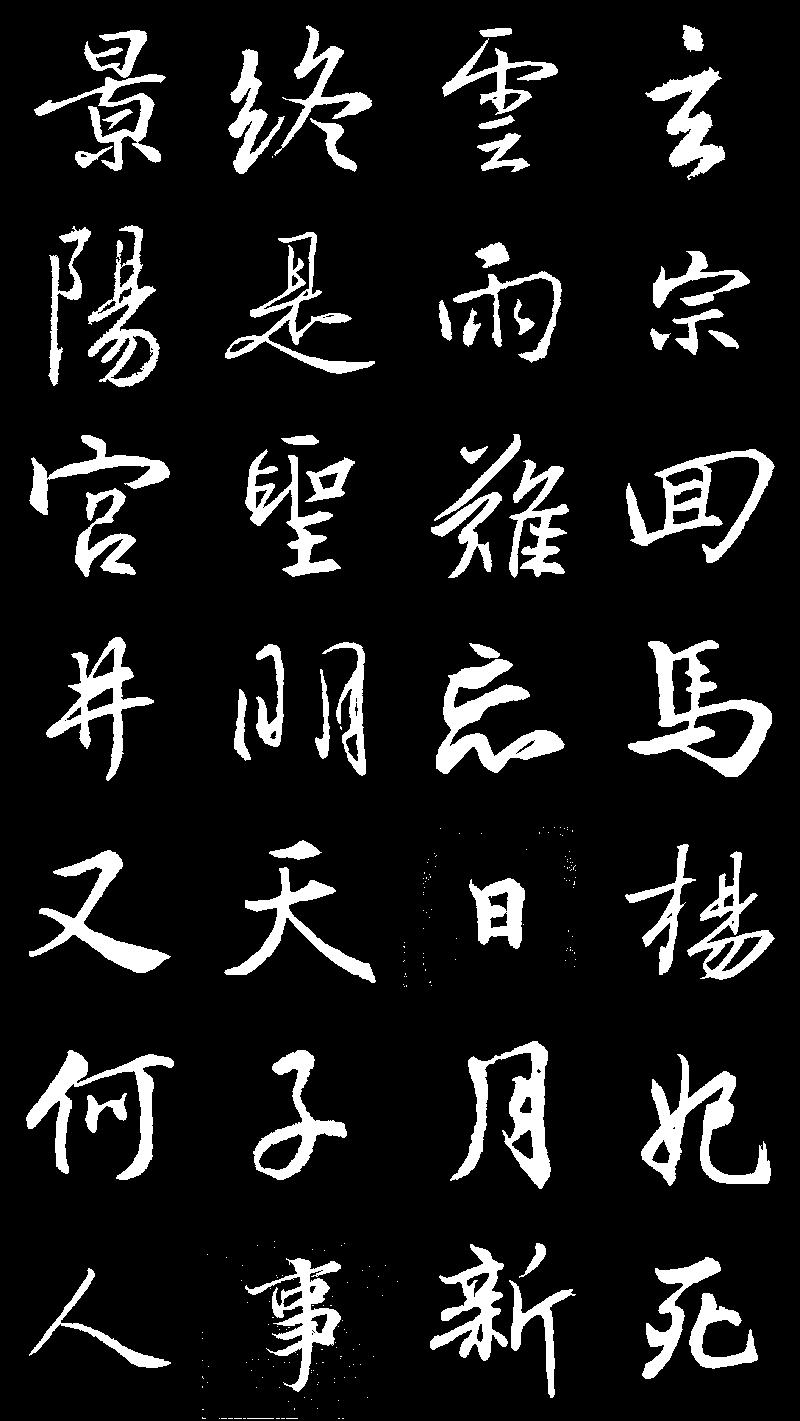 玄宗回馬楊妃死
雲雨難忘日月新
終是聖明天子事
景陽宮井又何人